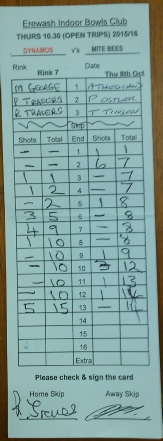 Erewash Indoor Bowls Club
THURS 10.30 (OPEN TRIPS) 2015/16
DYNAMOS v's MITE BEES
Rink Date
Rink 7 Thu 8th Oct
M GEORGE 1
P TRADERS 2 P
R TRAVERS 3 T
Skip
Shots Total End Shots Total
- - 1 1 1
- - 2 6 7
1 1 3 - 7
1 2 4 - 7
- 2 5 1 8
3 5 6 - 8
4 9 7 - 8
1 10 8 - 8
- 10 9 1 9
- 10 10 3 12
- 10 11 1 13
- 10 12 1 14
5 15 13 - 14
14
15
16
Extra
Please check & sign the card
Home Skip Away Skip